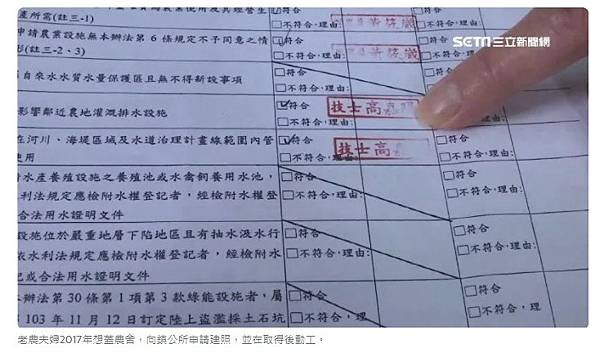 產所需(註三-1)
□不符合,理由:
申請農業設施無本辦法第6條規定不予同意之情
形(註三-2、3)
□符合
□不符合,理由:
□符合
□不符合,理由:
SETN三立新聞網
自來水水質水量保護區且無不得新設事項
□符合
□不符合,理由:
影響鄰近農地灌溉排水設施
符合
□不符合,理由:
技士高
在河川、海堤區域及水道治理計畫線範圍內管
使用
符合
□不符合,理由:
技士高
□符合
□不符合,理由:
水產養殖設施之養殖池或水禽飼養用水池,
利法規定應檢附水權登記者,經檢附水權登
合法用水證明文件
□符合
□不符合,理由:
□符合
□不符合,理由:
設施位於嚴重地層下陷地區且有抽水汲水行
依水利法規定應檢附水權登記者,經檢附水
記或合法用水證明文件
□符合
□不符合,理由:
□符合
□不符合,理由:
辦法第30條第1項第3款綠能設施者,屬
103年11月12日訂定陸上盜濫採土石坑
□符合
□不符合,理由:
□符合
□不符合,理由:
老農夫婦2017年想蓋農舍,向鎮公所申請建照,並在取得後動工。